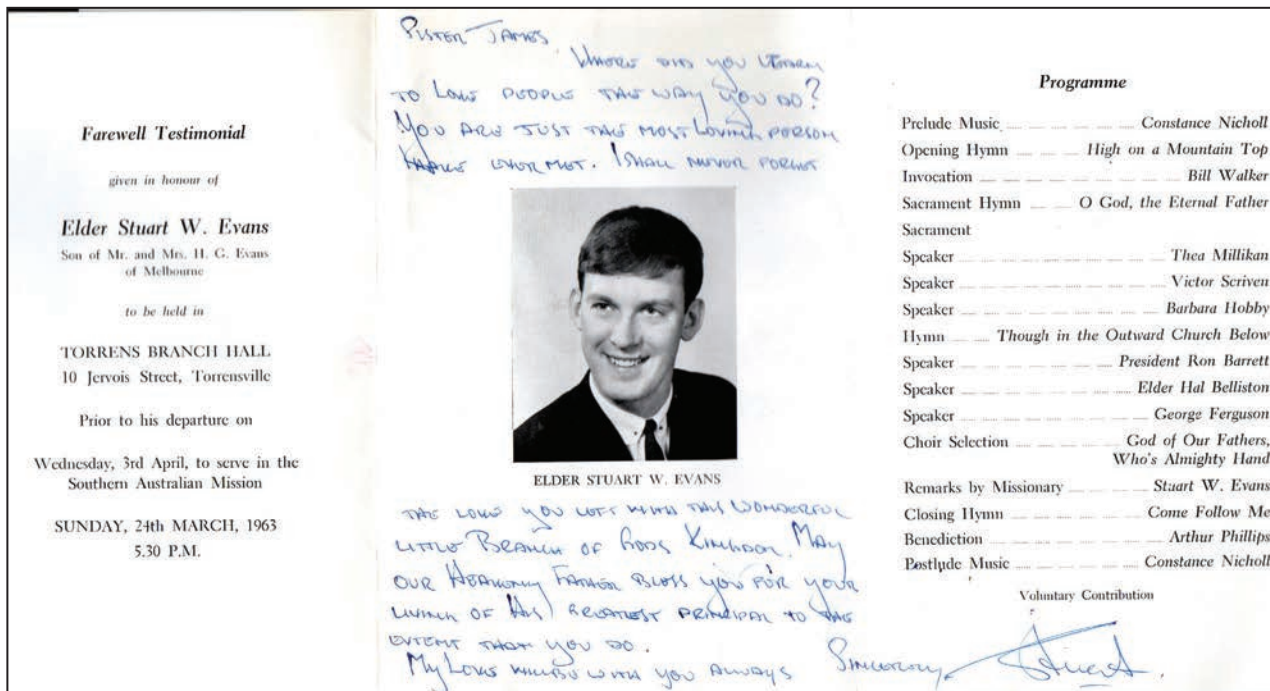 Farewell Testimonial
given in honour of
Elder Stuart W. Evans
Son of Mr. and Mrs. H. G. Evans
of Melbourne
to be held in
TORRENS BRANCH HALL
10 Jervois Street, Torrensville
Prior to his departure on
Wednesday, 3rd April, to serve in the
Southern Australian Mission
SUNDAY, 24th MARCH, 1963
5.30 P.M.
SISTER JAMES,
WHERE DID YOU LEARN
TO LOVE PEOPLE THE WAY YOU DO?
YOU ARE JUST THE MOST LOVING PERSON
I HAVE EVER MET. I SHALL NEVER FORGET
ELDER STUART W. EVANS
THE LOVE YOU LEFT WITH THIS WONDERFUL
LITTLE BRANCH OF GODS KINGDOM. MAY
OUR HEAVENLY FATHER BLESS YOU FOR YOUR
LIVING OF HIS GREATEST PRINCIPAL TO THE
EXTENT THAT YOU DO.
MY LOVE WILL BE WITH YOU ALWAYS
SINCERELY Stuart.
Programme
Prelude Music Constance Nicholl
Opening Hymn High on a Mountain Top
Invocation Bill Walker
Sacrament Hymn O God, the Eternal Father
Sacrament
Speaker Thea Millikan
Speaker Victor Scriven
Speaker Barbara Hobby
Hymn Though in the Outward Church Below
Speaker President Ron Barrett
Speaker Elder Hal Belliston
Speaker George Ferguson
Choir Selection God of Our Fathers,
Who's Almighty Hand
Remarks by Missionary Stuart W. Evans
Closing Hymn Come Follow Me
Benediction Arthur Phillips
Postlude Music Constance Nicholl
Voluntary Contribution